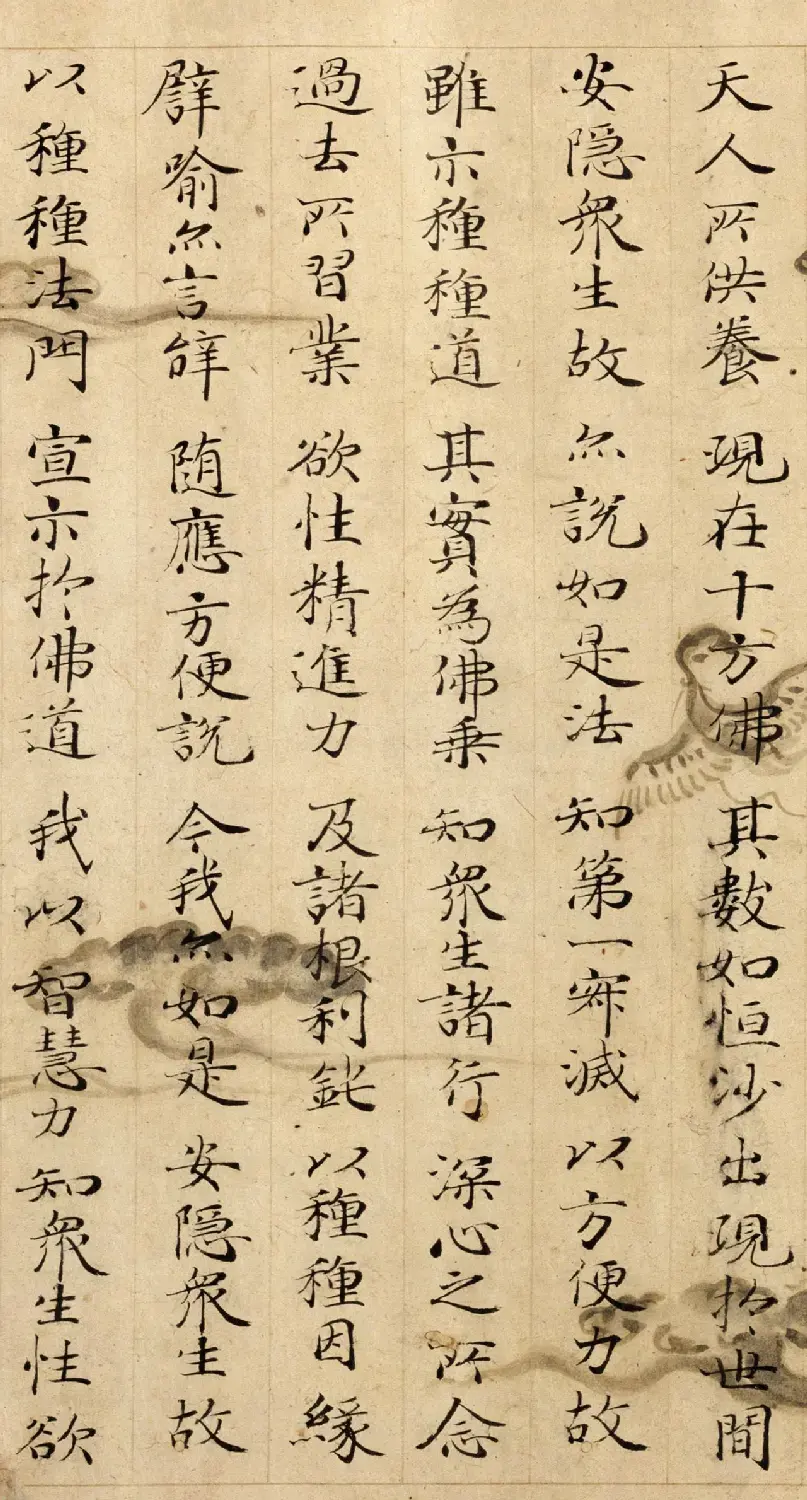 天人所供養 現在十方佛 其數如恒沙 出現於世間
安隱衆生故 亦說如是法 知第一寂滅 以方便力故
雖示種種道 其實為佛乘 知衆生諸行 深心之所念
過去所習業 欲性精進力 及諸根利鈍 以種種因緣
譬喻亦言辞 随應方便說 今我亦如是 安隱衆生故
以種種法門 宣示於佛道 我以智慧力 知衆生性欲